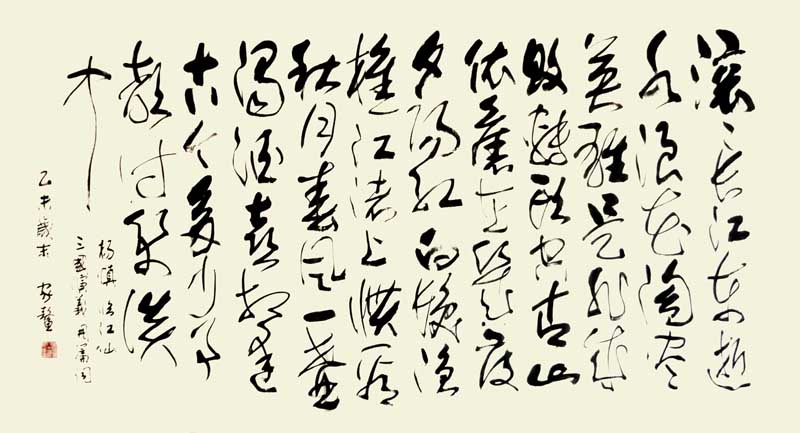 滾滾長江東逝
水浪花淘盡
英雄是非成
敗轉頭空青山
依舊在幾度
夕陽紅白髮漁
樵江渚上慣看
秋月春風一壺
濁酒喜相逢
古今多少事
都付笑談
中
楊慎臨江仙
三國演義開篇詞
乙未歲末